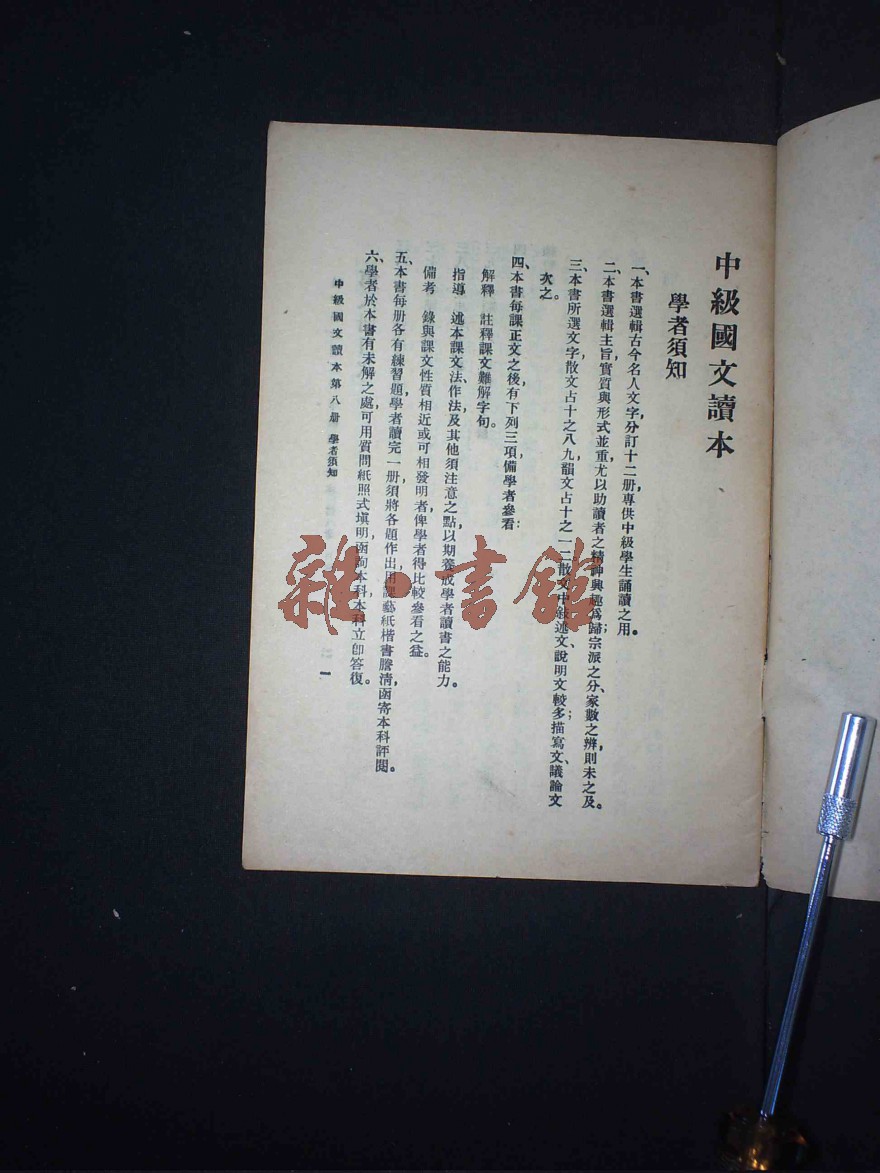 中級國文讀本
學者須知
一、本書選輯古今名人文字，分訂十二册，專供中級學生誦讀之用。
二、本書選輯主旨，實質與形式並重，尤以助讀者之精神興趣爲歸；宗派之分、家數之辨，則未之及。
三、本書所選文字，散文占十之八九，韻文占十之一二；散文中敍述文、說明文較多；描寫文、議論文
次之。
四、本書每課正文之後，有下列三項，備學者參看：
解釋　註釋課文難解字句。
指導　述本課文法、作法及其他須注意之點，以期養成學者讀書之能力。
備考　錄與課文性質相近或可相發明者，俾學者得比較參看之益。
五、本書每册各有練習題，學者讀完一册，須將各題作出，用課藝紙楷書謄淸，函寄本科評閱。
六、學者於本書有未解之處，可用質問紙照式塡明，函詢本科，本科立卽答復。
中級國文讀本第八册　學者須知
一
雜·書館